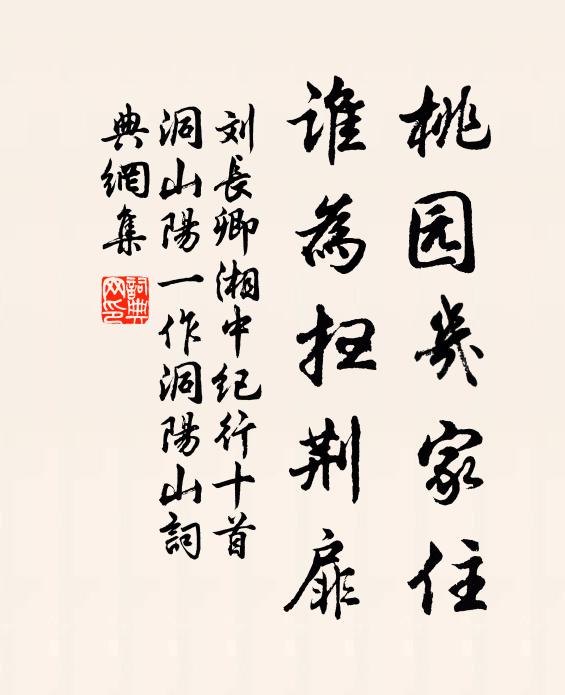 桃园几家住
谁為扫荆扉
刘長卿湘中纪行十首
洞山陽一作洞陽山詞
典網集
詞典网印